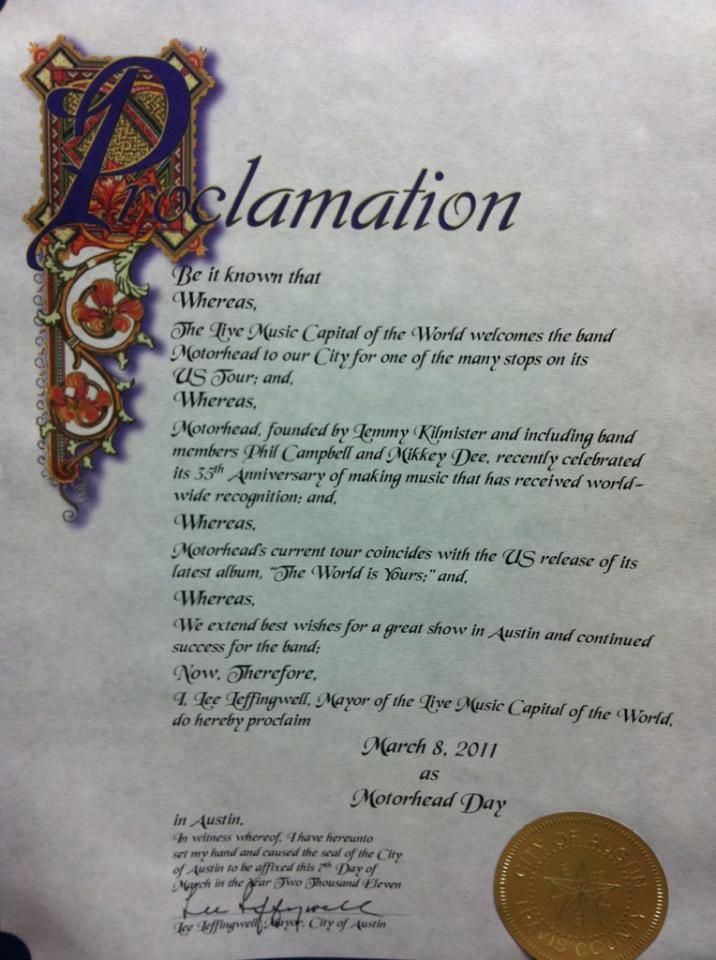 Proclamation
Be it known that
Whereas,
The Live Music Capital of the World welcomes the band
Motorhead to our City for one of the many stops on its
US Tour; and,
Whereas,
Motorhead, founded by Lemmy Kilmister and including band
members Phil Campbell and Mikkey Dee, recently celebrated
its 35th Anniversary of making music that has received world-
wide recognition; and,
Whereas,
Motorhead's current tour coincides with the US release of its
latest album, "The World is Yours;" and,
Whereas,
We extend best wishes for a great show in Austin and continued
success for the band;
Now, Therefore,
I, Lee Leffingwell, Mayor of the Live Music Capital of the World,
do hereby proclaim
March 8, 2011
as
Motorhead Day
in Austin.
In witness whereof, I have hereunto
set my hand and caused the seal of the City
of Austin to be affixed this 7th Day of
March in the Year Two Thousand Eleven
Lee Leffingwell
Lee Leffingwell, Mayor, City of Austin
CITY OF AUSTIN
TRAVIS COUNTY